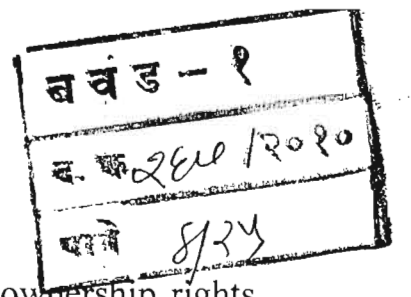 बवंड - १
द. क्र /२०१०
पाने ४/२५
ownership rights